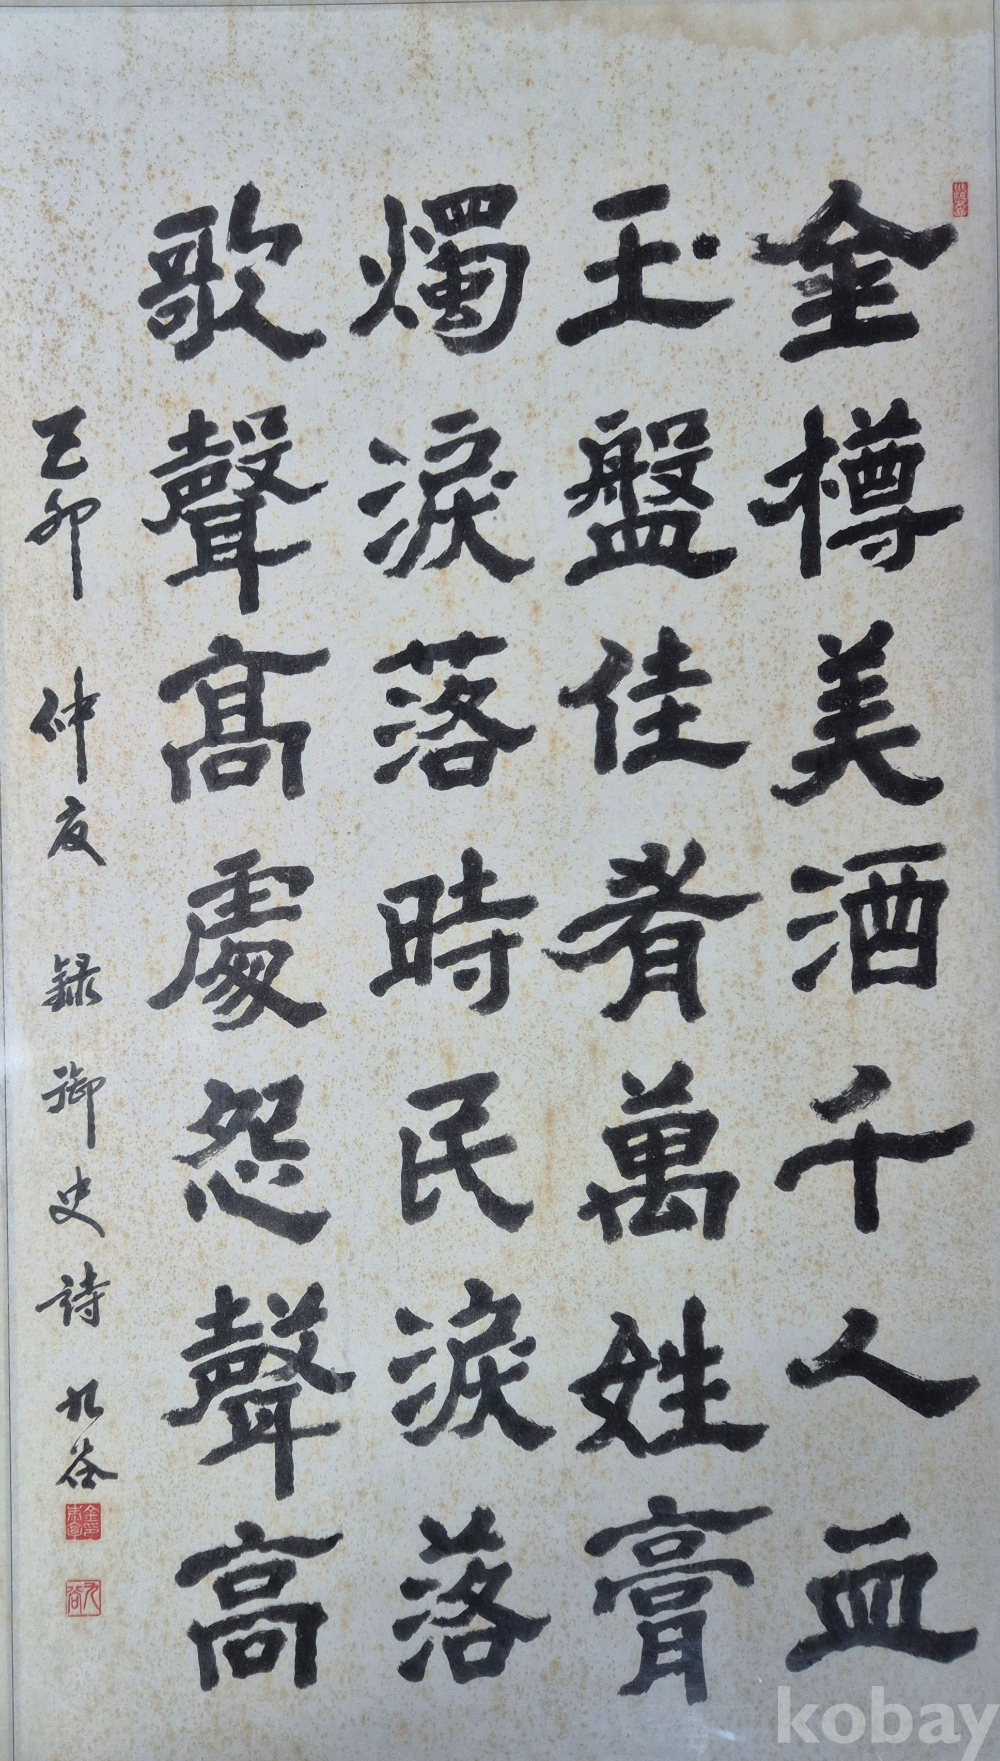 金樽美酒千人血
玉盤佳肴萬姓膏
燭淚落時民淚落
歌聲高處怨聲高
己卯 仲夏 錄 御史詩 九谷
九谷
kobay